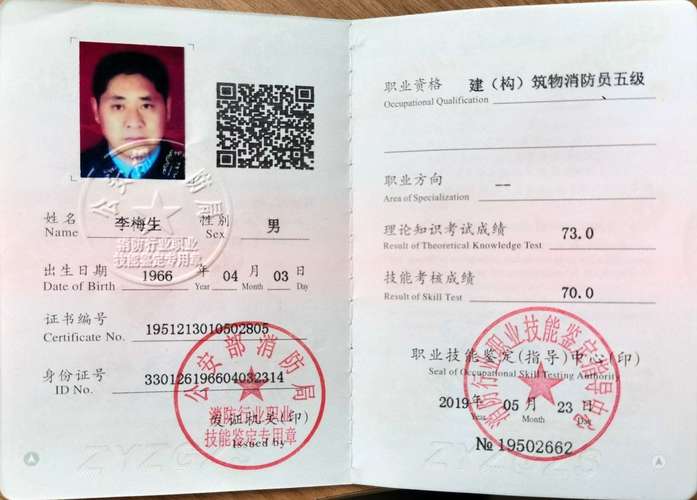 姓名 李梅生 性别 男
Name Sex
出生日期 1966 年 04 月 03 日
Date of Birth Year Month Day
证书编号
Certificate No. 1951213010502805
身份证号 330126196604032314
ID No.
发证机关(印)
Issued by
公安部消防局
消防行业职业
技能鉴定专用章
公安部消防局
消防行业职业
技能鉴定专用章
职业资格 建（构）筑物消防员五级
Occupational Qualification
职业方向 --
Area of Specialization
理论知识考试成绩 73.0
Result of Theoretical Knowledge Test
技能考核成绩 70.0
Result of Skill Test
职业技能鉴定(指导)中心(印)
Seal of Occupational Skill Testing Authority
2019年 05 月 23 日
Year Month Day
№ 19502662
消防行业职业技能鉴定指导中心